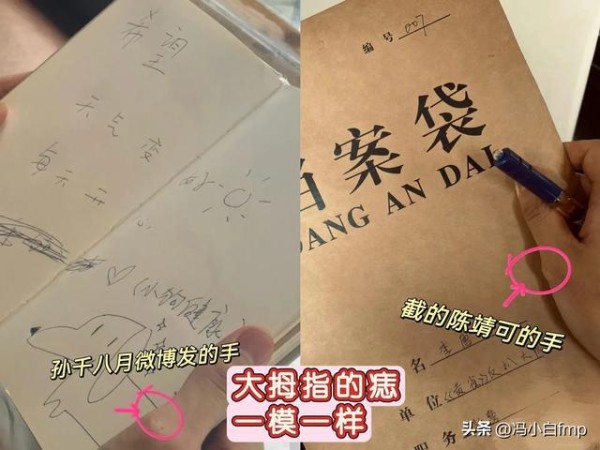 希望
天气变好
每天开心
♡(小狗健康)
孙千八月微博发的手
编号 007
档案袋
DANG AN DAI
截的陈靖可的手
名
单位
职务
大拇指的痣
一模一样
头条 @冯小白fmp